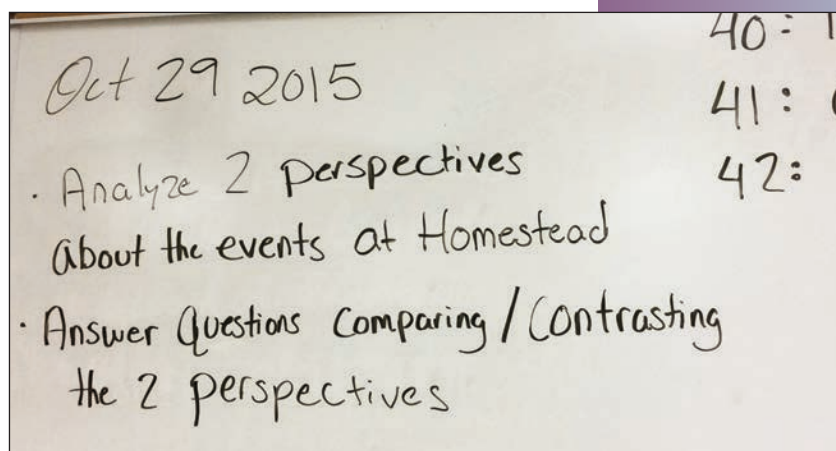 Oct 29 2015
· Analyze 2 perspectives
about the events at Homestead
· Answer Questions Comparing / Contrasting
the 2 perspectives
40:
41:
42: